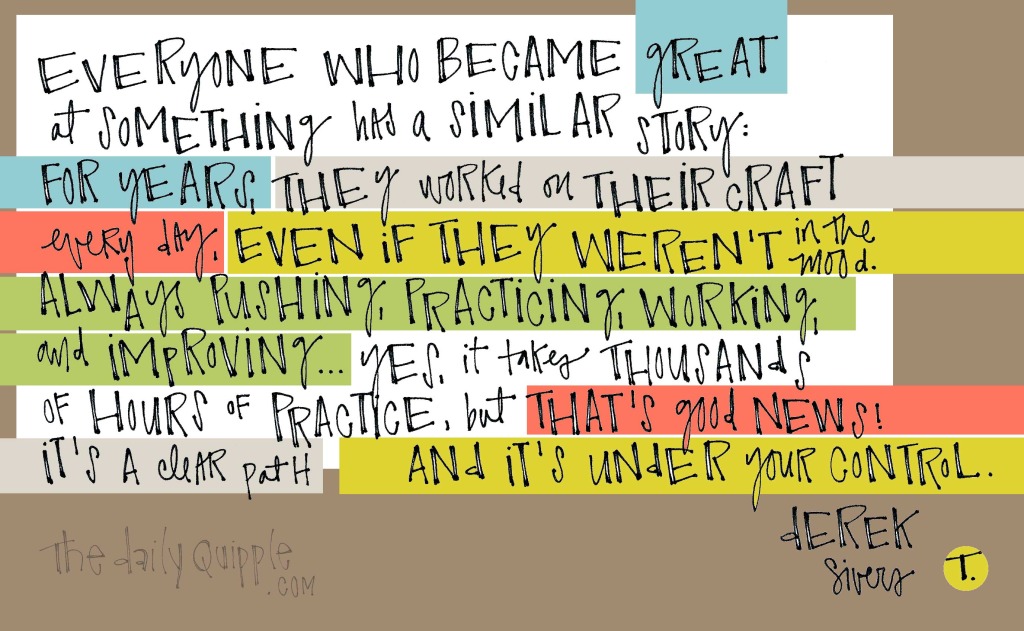 EVERYONE WHO BECAME gREAT
at SOMETHiNg hAs a SiMILAR STORy:
FOR yEARS, THEy workEd on THEiR cRAFT
every dAy, EVEN iF THEy WEREN'T in the mood.
ALWAyS PUSHiNg, PRACTiCiNg, WORKiNg,
and iMpROViNg... yES, it takes THOUSANdS
OF HOURS OF PRACTiCE, but THAT'S good NEWS!
iT'S A clEAR patH AND iT'S UNDER yOUR CONTROL.
dEREK
Sivers
The daily Quipple
.COM
T.